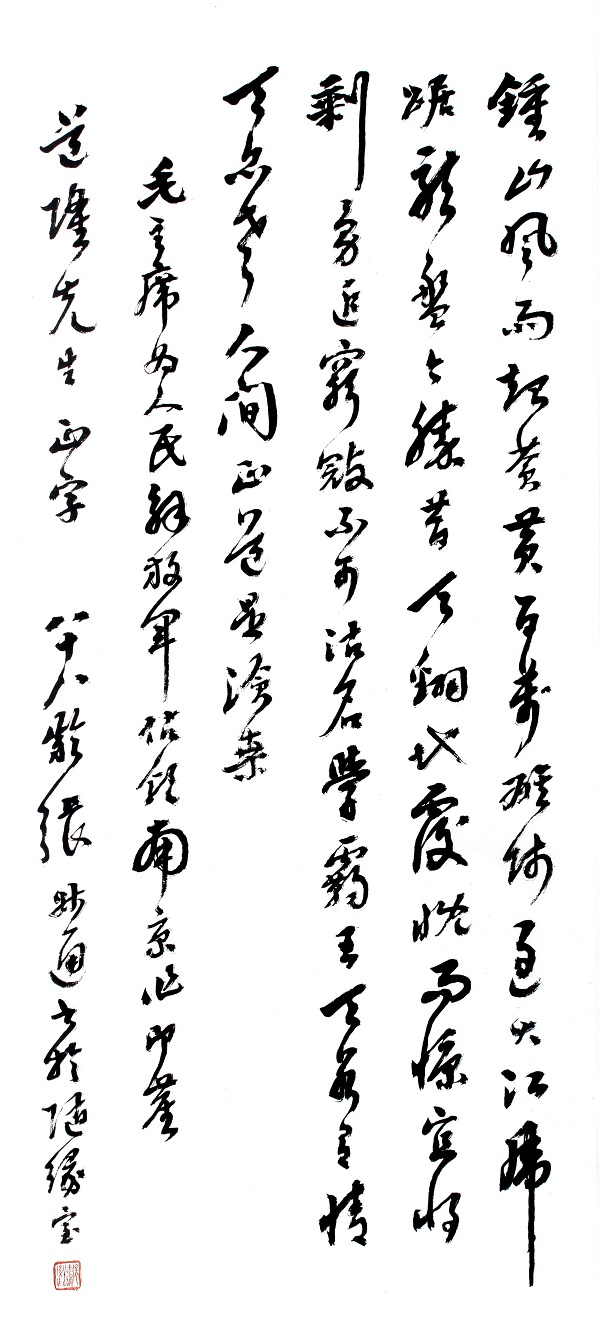 鍾山風雨起蒼黃百萬雄師過大江虎
踞龍盤今勝昔天翻地覆慨而慷宜將
剩勇追窮寇不可沽名學霸王天若有情
天亦老人間正道是滄桑
毛主席為人民解放軍佔領南京作
道隆先生正字 八十八齡張通書於隨緣室